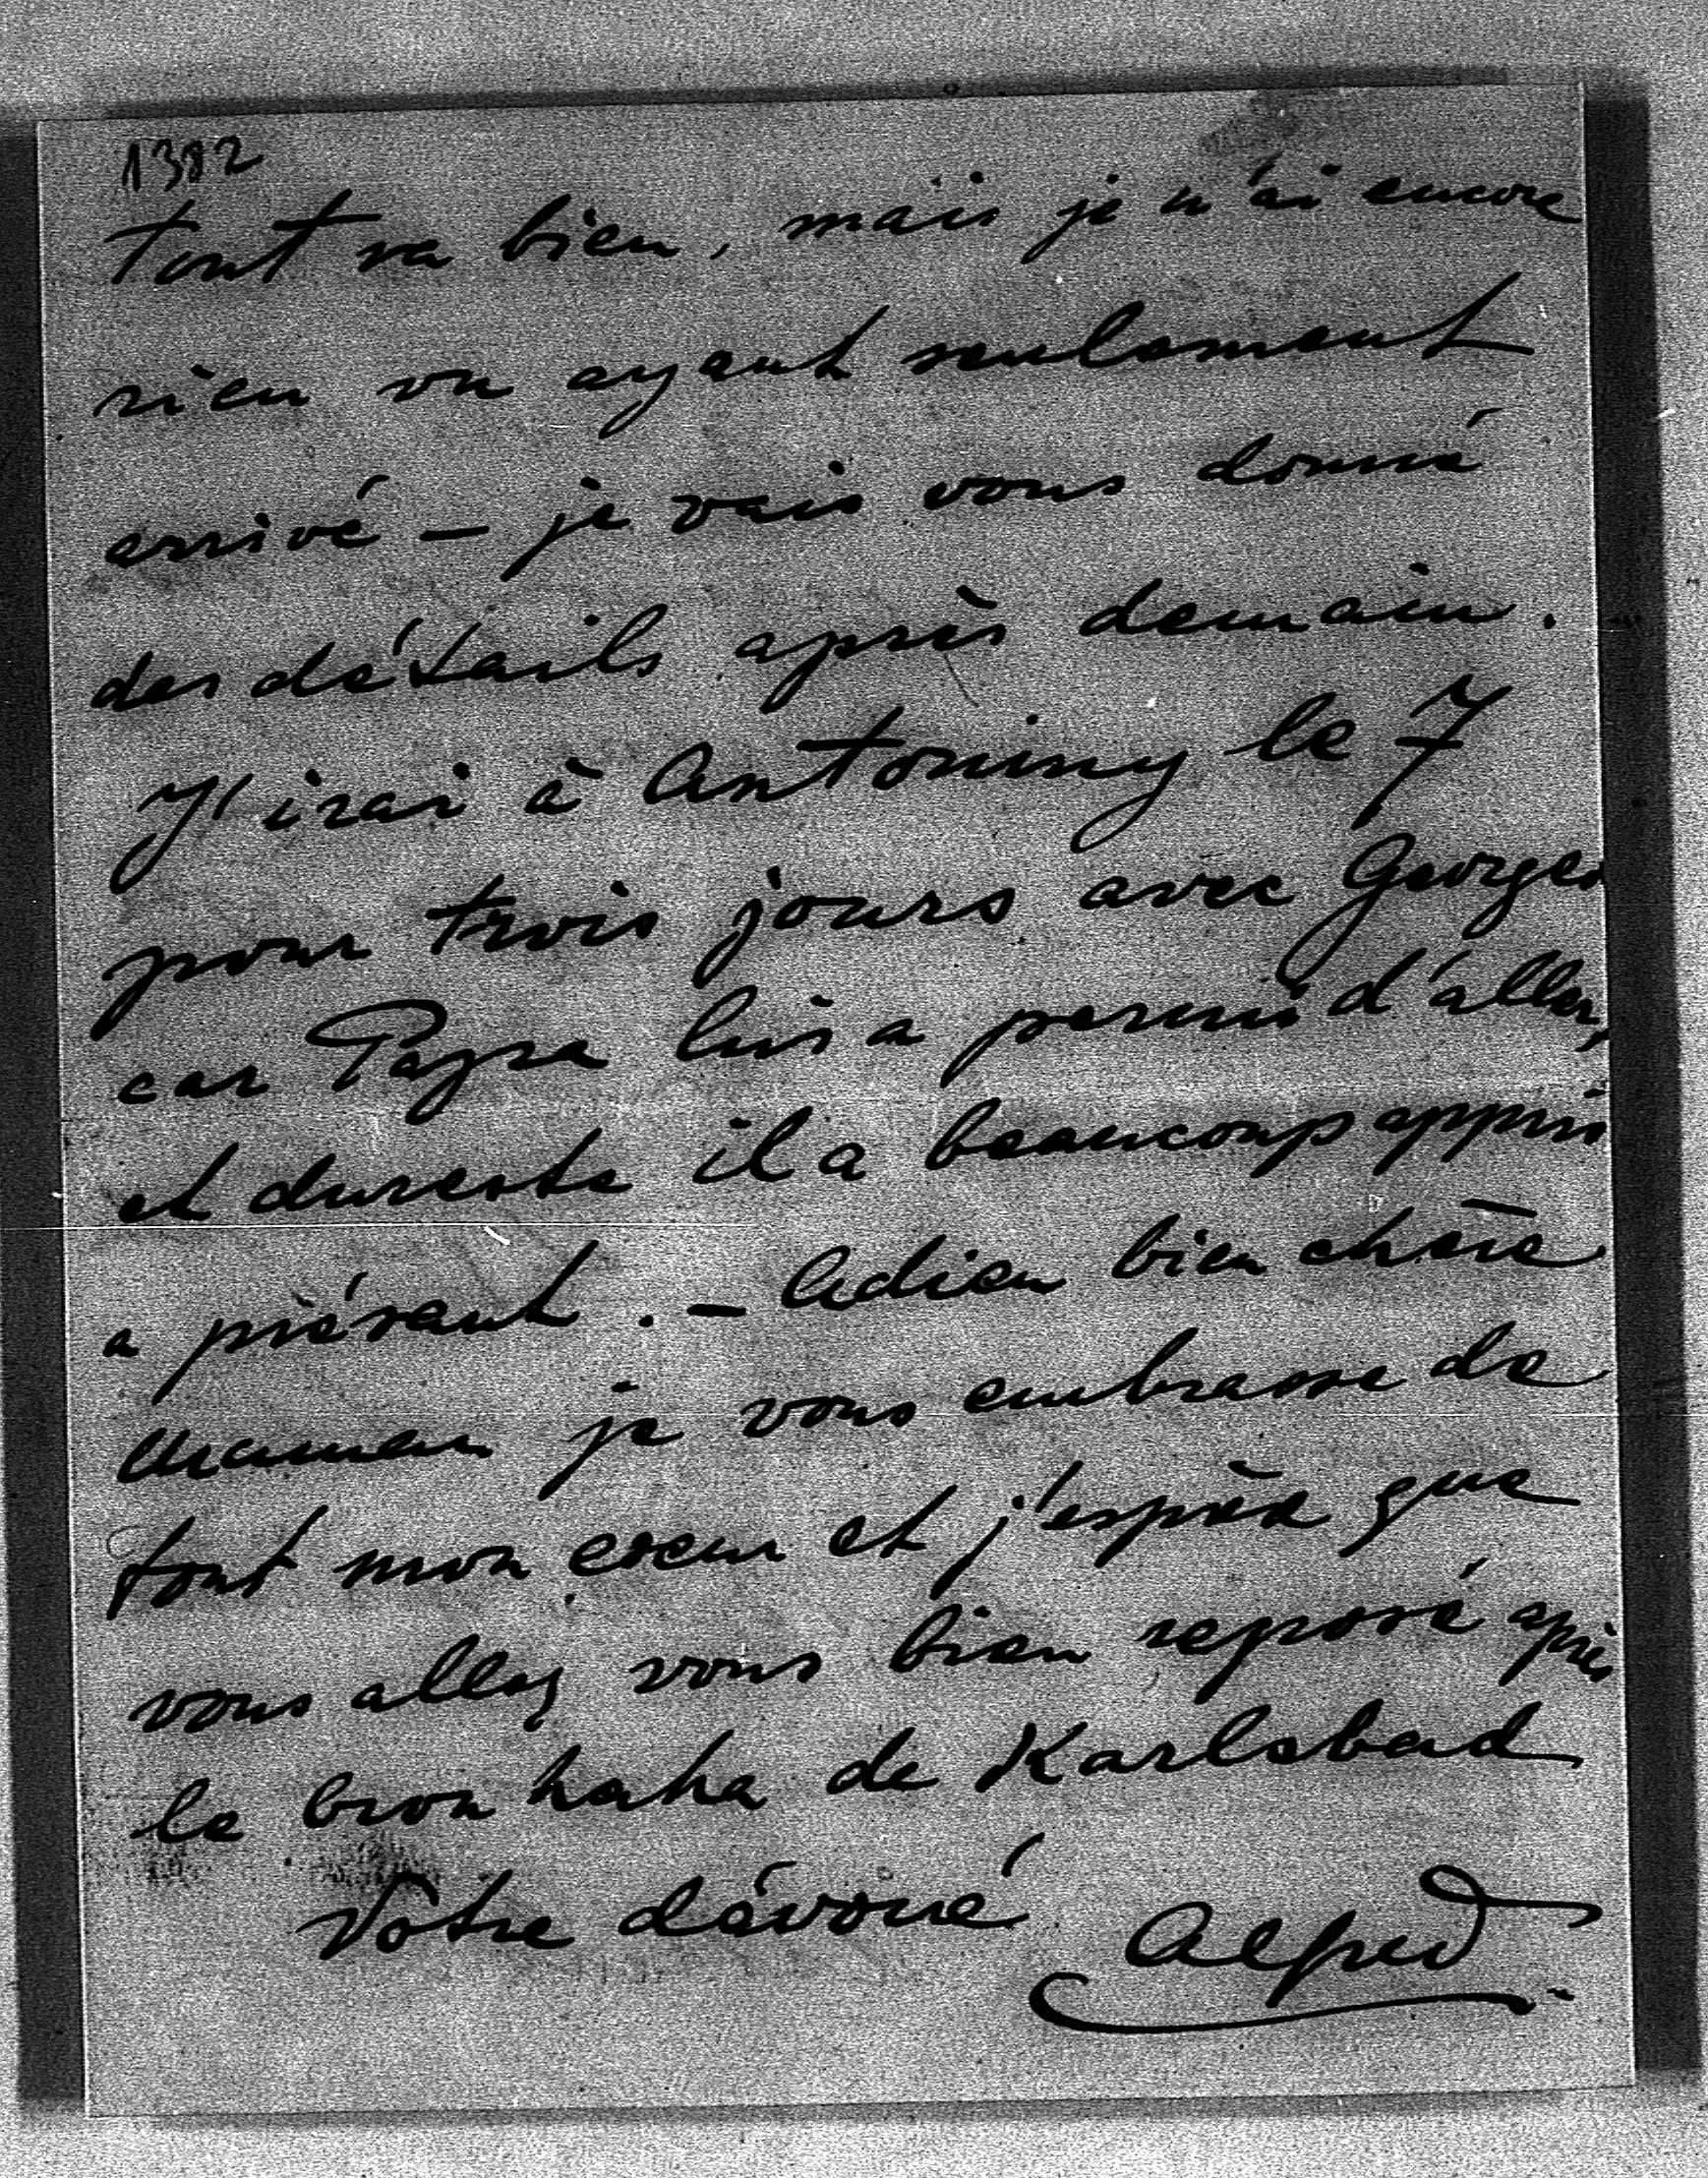 1382
tout va bien, mais je n'ai encore
rien vu ayant seulement
arrivé – je vais vous donné
des détails après demain.
J'irai à Antoniny le 7
pour trois jours avec Georges
car Papa lui a permis d'aller,
et dureste il a beaucoup appris
a présent. – Adieu bien chère
Maman je vous embrasse de
tout mon coeur et j'espère que
vous allez vous bien reposé après
le brou haha de Karlsbad
Votre dévoué
Alfred